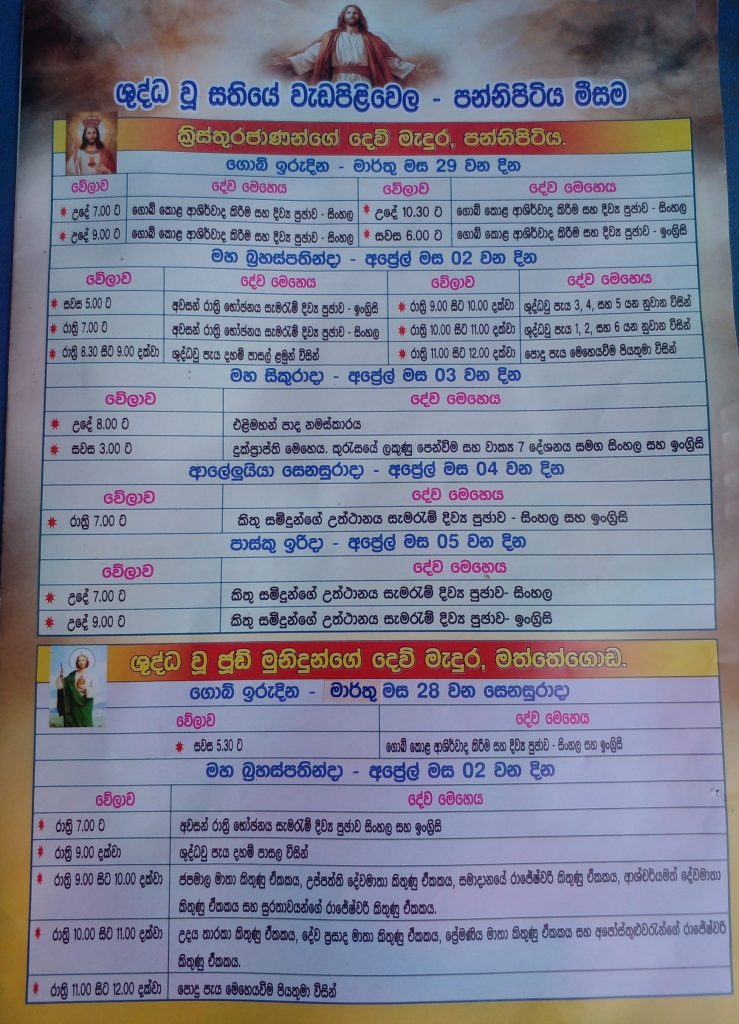 ශුද්ධ වූ සතියේ වැඩපිළිවෙල - පන්නිපිටිය මීසම
ක්‍රිස්තුරජාණන්ගේ දෙව් මැදුර, පන්නිපිටිය.
ගොබ් ඉරුදින - මාර්තු මස 29 වන දින
වේලාව දේව මෙහෙය වේලාව දේව මෙහෙය
උදේ 7.00 ට ගොබ් කොළ ආශිර්වාද කිරීම සහ දිව්‍ය පූජාව - සිංහල උදේ 10.30 ට ගොබ් කොළ ආශිර්වාද කිරීම සහ දිව්‍ය පූජාව - සිංහල
උදේ 9.00 ට ගොබ් කොළ ආශිර්වාද කිරීම සහ දිව්‍ය පූජාව - සිංහල සවස 6.00 ට ගොබ් කොළ ආශිර්වාද කිරීම සහ දිව්‍ය පූජාව - ඉංග්‍රිසි
මහ බ්‍රහස්පතින්දා - අප්‍රේල් මස 02 වන දින
වේලාව දේව මෙහෙය වේලාව දේව මෙහෙය
සවස 5.00 ට අවසන් රාත්‍රි භෝජනය සැමරැම් දිව්‍ය පූජාව - ඉංග්‍රිසි රාත්‍රි 9.00 සිට 10.00 දක්වා ශුද්ධවු පැය 3, 4, සහ 5 යන නුවාන විසින්
රාත්‍රි 7.00 ට අවසන් රාත්‍රි භෝජනය සැමරැම් දිව්‍ය පූජාව - සිංහල රාත්‍රි 10.00 සිට 11.00 දක්වා ශුද්ධවු පැය 1, 2, සහ 6 යන නුවාන විසින්
රාත්‍රි 8.30 සිට 9.00 දක්වා ශුද්ධවු පැය දහම් පාසල් ළමුන් විසින් රාත්‍රි 11.00 සිට 12.00 දක්වා පොදු පැය මෙහෙයවීම පියතුමා විසින්
මහ සිකුරාදා - අප්‍රේල් මස 03 වන දින
වේලාව දේව මෙහෙය
උදේ 8.00 ට එළිමහන් පාද නමස්කාරය
සවස 3.00 ට දුක්ප්‍රාප්ති මෙහෙය. කුරැසයේ ලකුණු පෙන්වීම සහ වාක්‍ය 7 දේශනය සමග සිංහල සහ ඉංග්‍රිසි
ආලේලුයියා සෙනසුරාදා - අප්‍රේල් මස 04 වන දින
වේලාව දේව මෙහෙය
රාත්‍රි 7.00 ට කිතු සමිදුන්ගේ උත්ථානය සැමරැම් දිව්‍ය පූජාව - සිංහල සහ ඉංග්‍රිසි
පාස්කු ඉරිදා - අප්‍රේල් මස 05 වන දින
වේලාව දේව මෙහෙය
උදේ 7.00 ට කිතු සමිදුන්ගේ උත්ථානය සැමරැම් දිව්‍ය පූජාව- සිංහල
උදේ 9.00 ට කිතු සමිදුන්ගේ උත්ථානය සැමරැම් දිව්‍ය පූජාව- ඉංග්‍රිසි
ශුද්ධ වූ ජූඩ් මුනිඳුන්ගේ දෙව් මැදුර, මත්තේගොඩ.
ගොබ් ඉරුදින - මාර්තු මස 28 වන සෙනසුරාදා
වේලාව දේව මෙහෙය
සවස 5.30 ට ගොබ් කොළ ආශිර්වාද කිරීම සහ දිව්‍ය පූජාව - සිංහල සහ ඉංග්‍රිසි
මහ බ්‍රහස්පතින්දා - අප්‍රේල් මස 02 වන දින
වේලාව දේව මෙහෙය
රාත්‍රි 7.00 ට අවසන් රාත්‍රි භෝජනය සැමරැම් දිව්‍ය පූජාව සිංහල සහ ඉංග්‍රිසි
රාත්‍රි 9.00 දක්වා ශුද්ධවු පැය දහම් පාසල විසින්
රාත්‍රි 9.00 සිට 10.00 දක්වා ජපමාල මාතා කිතුණු ඒකකය, උප්පත්ති දේවමාතා කිතුණු ඒකකය, සමාදානයේ රාජේෂ්වරී කිතුණු ඒකකය, ආශ්චර්යමත් දේවමාතා
කිතුණු ඒකකය සහ සුරතාවයන්ගේ රාජේෂ්වරී කිතුණු ඒකකය.
රාත්‍රි 10.00 සිට 11.00 දක්වා උදය තාරකා කිතුණු ඒකකය, දේව ප්‍රසාද මාතා කිතුණු ඒකකය, ප්‍රේමණිය මාතා කිතුණු ඒකකය සහ අපෝස්තුළුවරැන්ගේ රාජේෂ්වරී
කිතුණු ඒකකය.
රාත්‍රි 11.00 සිට 12.00 දක්වා පොදු පැය මෙහෙයවීම පියතුමා විසින්